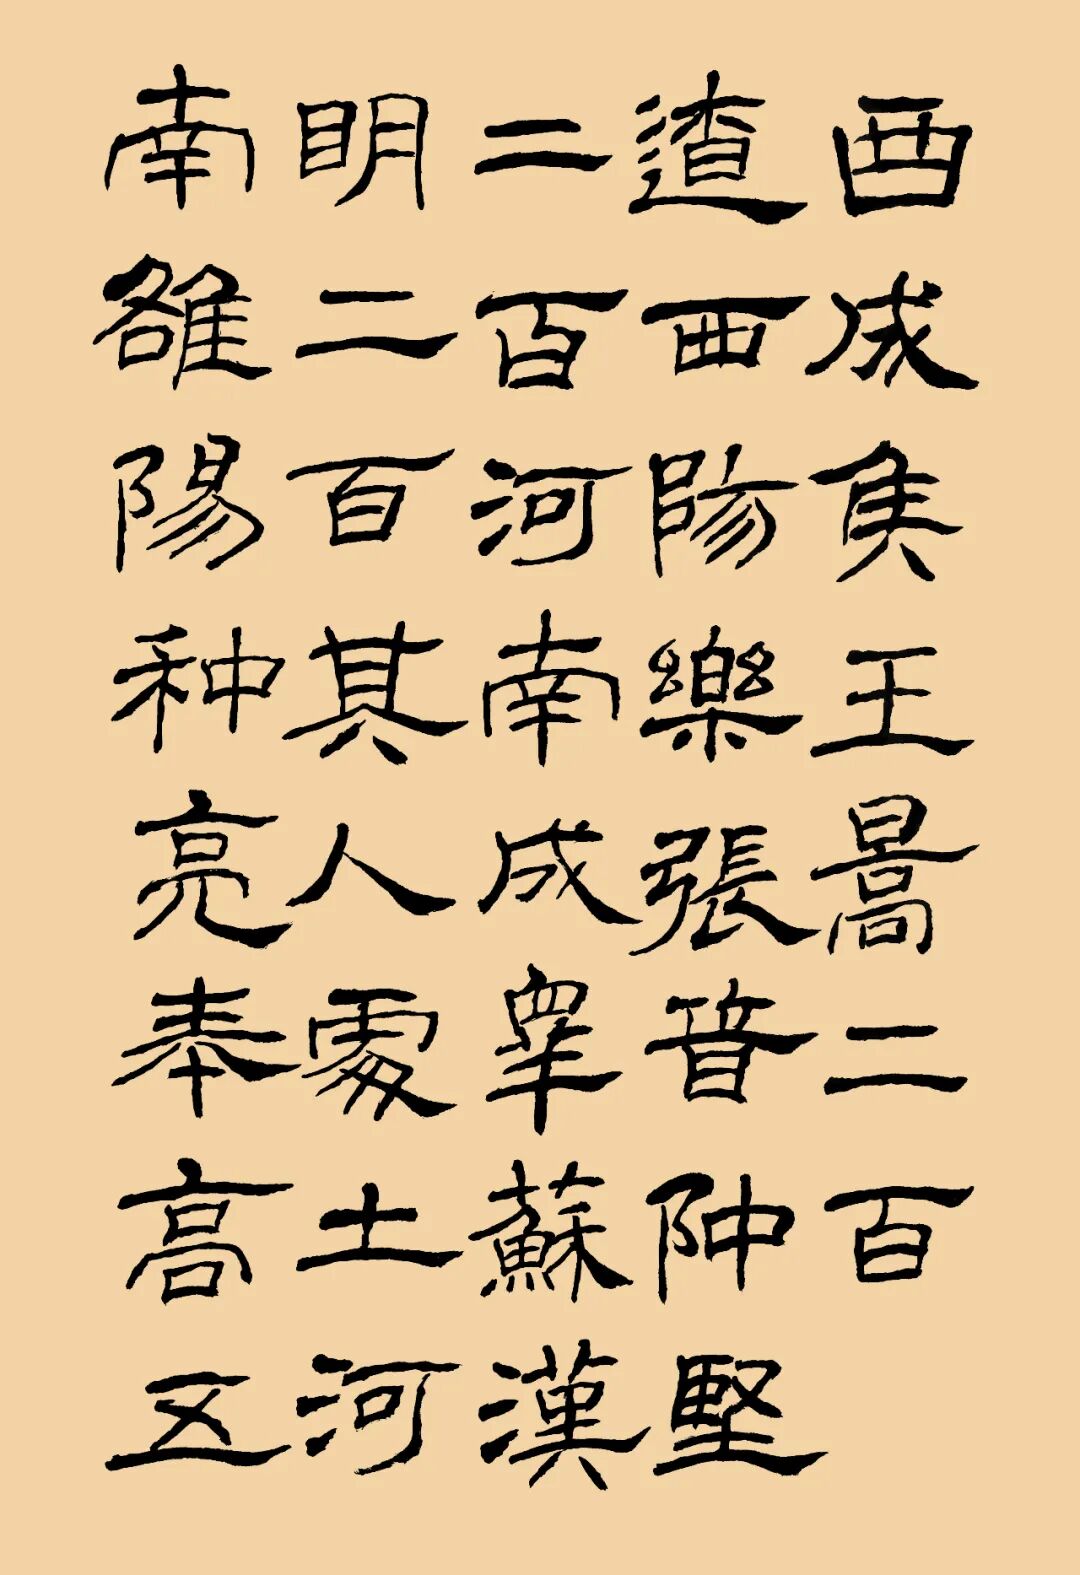 西成侯王暠二百
遼西陽樂張普仲堅
二百河南成皋蘇漢
明二百其人處士河
南雒陽种亮奉高五